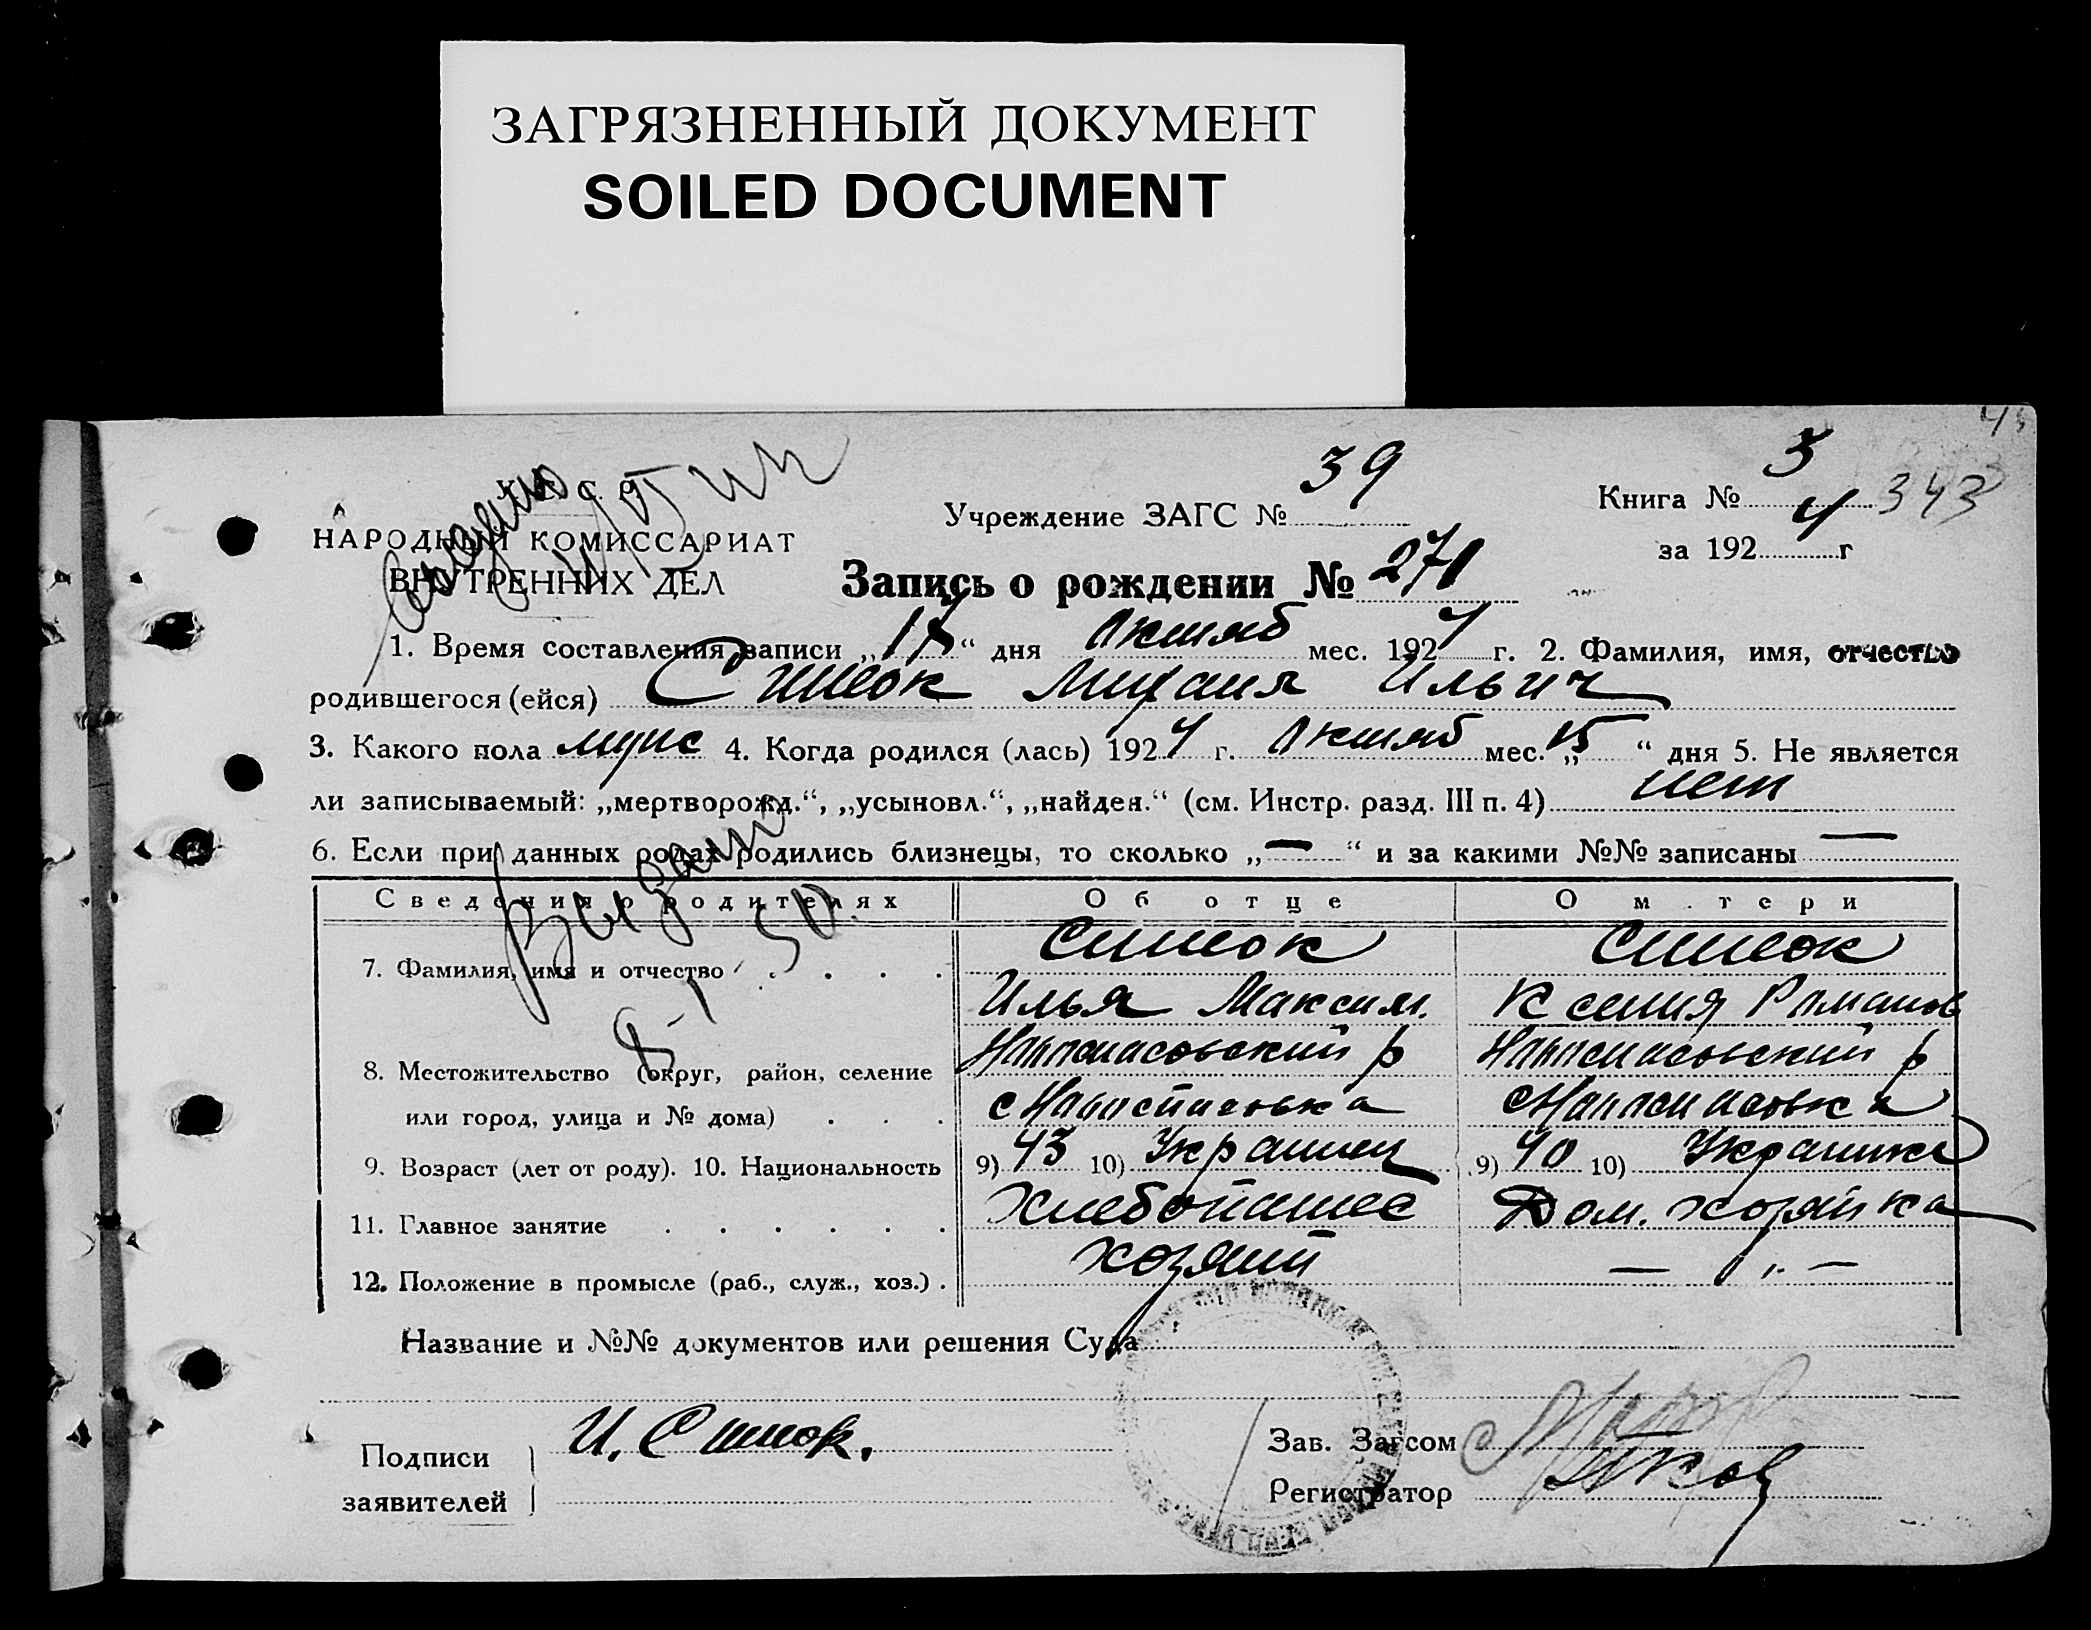 ЗАГРЯЗНЕННЫЙ ДОКУМЕНТ
SOILED DOCUMENT
У. С. С. Р.
НАРОДНЫЙ КОМИССАРИАТ
ВНУТРЕННИХ ДЕЛ
Учреждение ЗАГС № 39
Книга № 3
343
за 1924 г
Запись о рождении № 271
1. Время составления записи „ “ дня Октяб мес. 1924 г. 2. Фамилия, имя, отчество
родившегося (ейся) Михаил Ильич
3. Какого пола муж 4. Когда родился (лась) 1924 г. Октяб мес. „15“ дня 5. Не является
ли записываемый: „мертворожд.“, „усыновл.“, „найден.“ (см. Инстр. разд. III п. 4) нет
6. Если при данных родах родились близнецы, то сколько „—“ и за какими №№ записаны —
Выдано
Сведения о родителях Об отце О матери
7. Фамилия, имя и отчество
Илья Максим. Ксения Романов
8. Местожительство (округ, район, селение
или город, улица и № дома)
9. Возраст (лет от роду). 10. Национальность 9) 43 10) Украинец 9) 40 10) Украинка
11. Главное занятие Хлебопашес Дом. хозяйка
12. Положение в промысле (раб., служ., хоз.) хозяин — „ —
Название и №№ документов или решения Суда
Подписи
заявителей
И.
Зав. Загсом
Регистратор